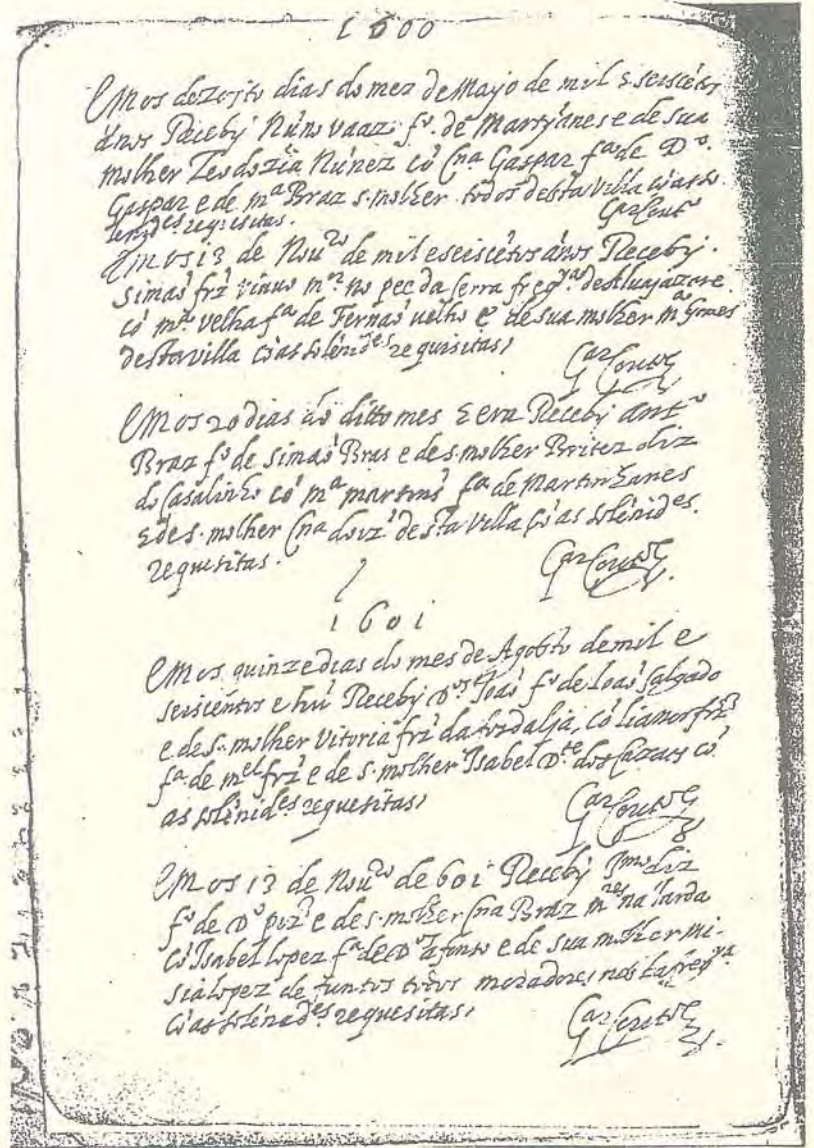 1600
Em os dezojto dias do mez de Mayo de mil & seiscẽtos
ános Receby Núno vaaz fº. de Martyánes e de sua
molher Teodozia Núnez cõ Cnª Gaspar fª de Dº.
Gaspar e de mª Braz s. molher todos desta villa cõ as so
lenjdes requisitas. Gar Coutº
Em os 13 de Nouro de mil e seiscẽtos ános Receby.
Simaõ frz viuuo mor no pee da serra freg.ª
cõ mª velha fª de Fernaõ uelho e de sua molher mª Gomes
desta villa cõ as solẽnides requisitas,
Gar Couto
Em os 20 dias do ditto mes & era Receby Antº
Braz fº de Simaõ Bras e de s. molher Britez diz
do Casalinho cõ mª martins fª de Martinhanes
& de s. molher Cna desta villa cõ as solẽnides.
requesitas.
Gar Couto
1601
Em os quinze dias do mes de Agosto de mil e
seiscẽntos e hũ Receby Joaõ fº de Joaõ Salgado
e de s. molher Vitoria frz da, cõ
fª de mel frz e de s. molher Isabel dos Cazaes cõ
as solẽnides requesitas,
Gar Couto
Em os 13 de Nouro de 601 Receby diz
fº de Dº e de s. molher Cna Braz mor na
cõ Isabel lopez fª de afonso e de sua molher Mi-
sia lopez defuntos todos moradores nesta freg.ª
cõ as solẽnades requesitas,
Gar Couto